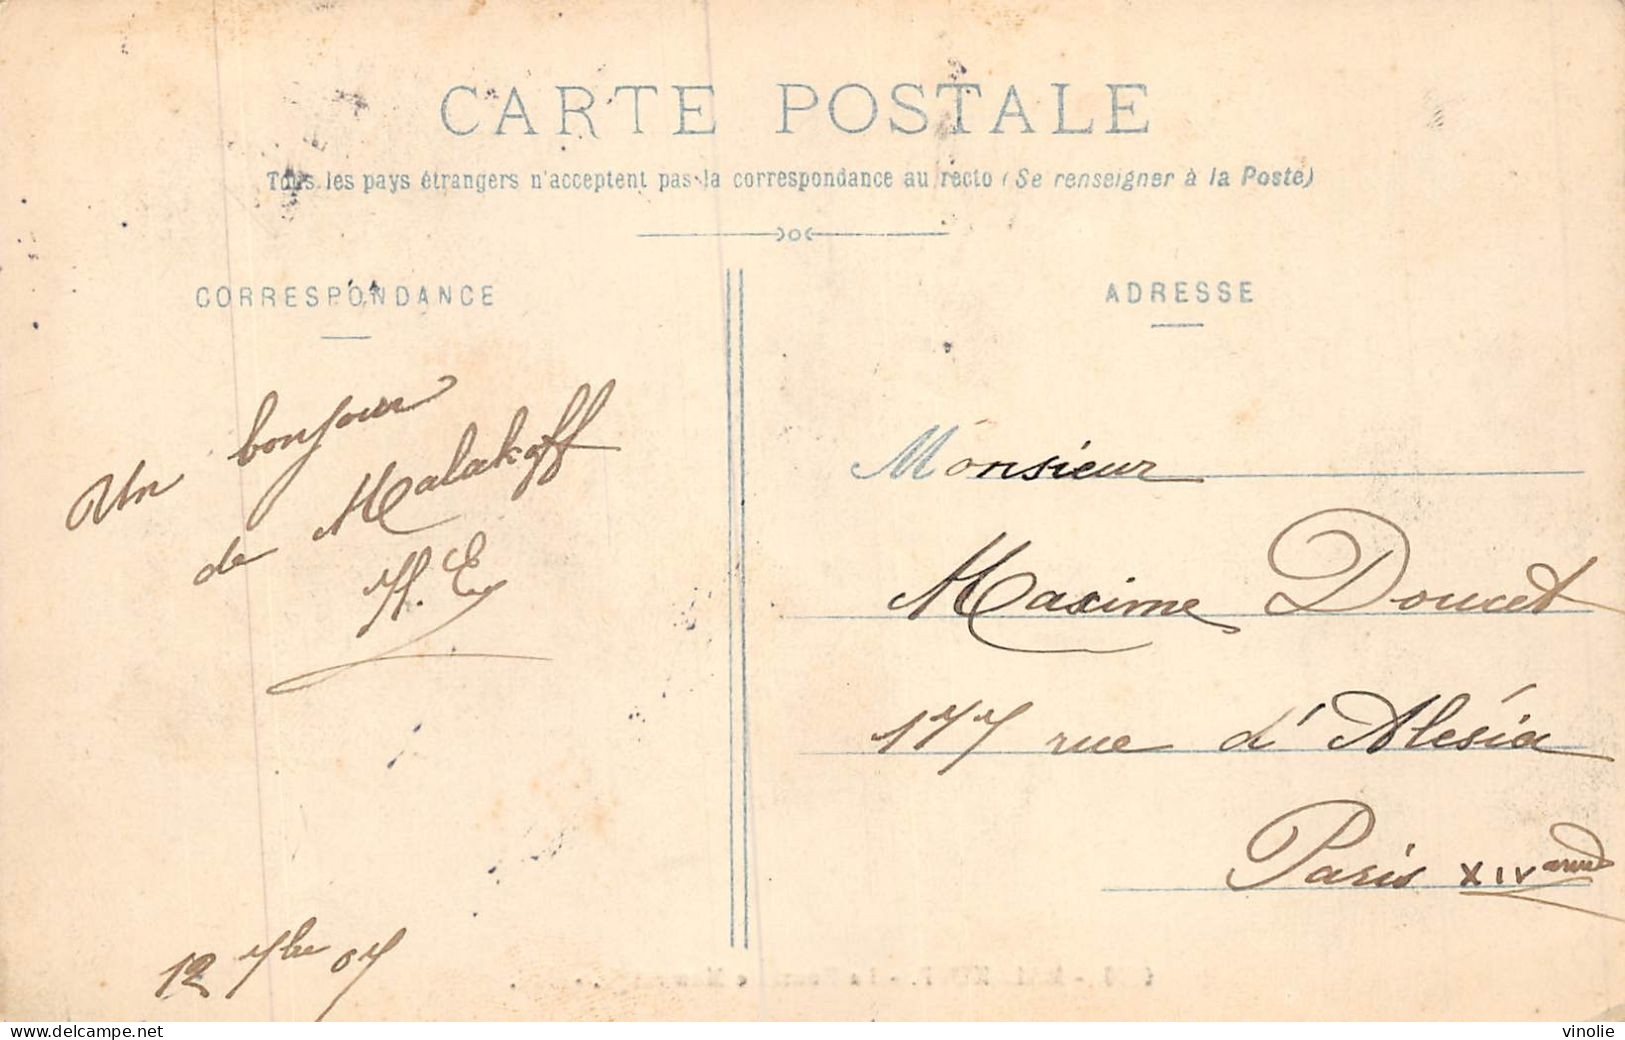 CARTE POSTALE
Tous les pays étrangers n'acceptent pas la correspondance au recto (Se renseigner à la Poste)
CORRESPONDANCE
Un bonjour
de Malakoff
12 7bre 07
ADRESSE
Monsieur
Maxime Doucet
177 rue d'Alésia
Paris XIV
delcampe.net
vinolie